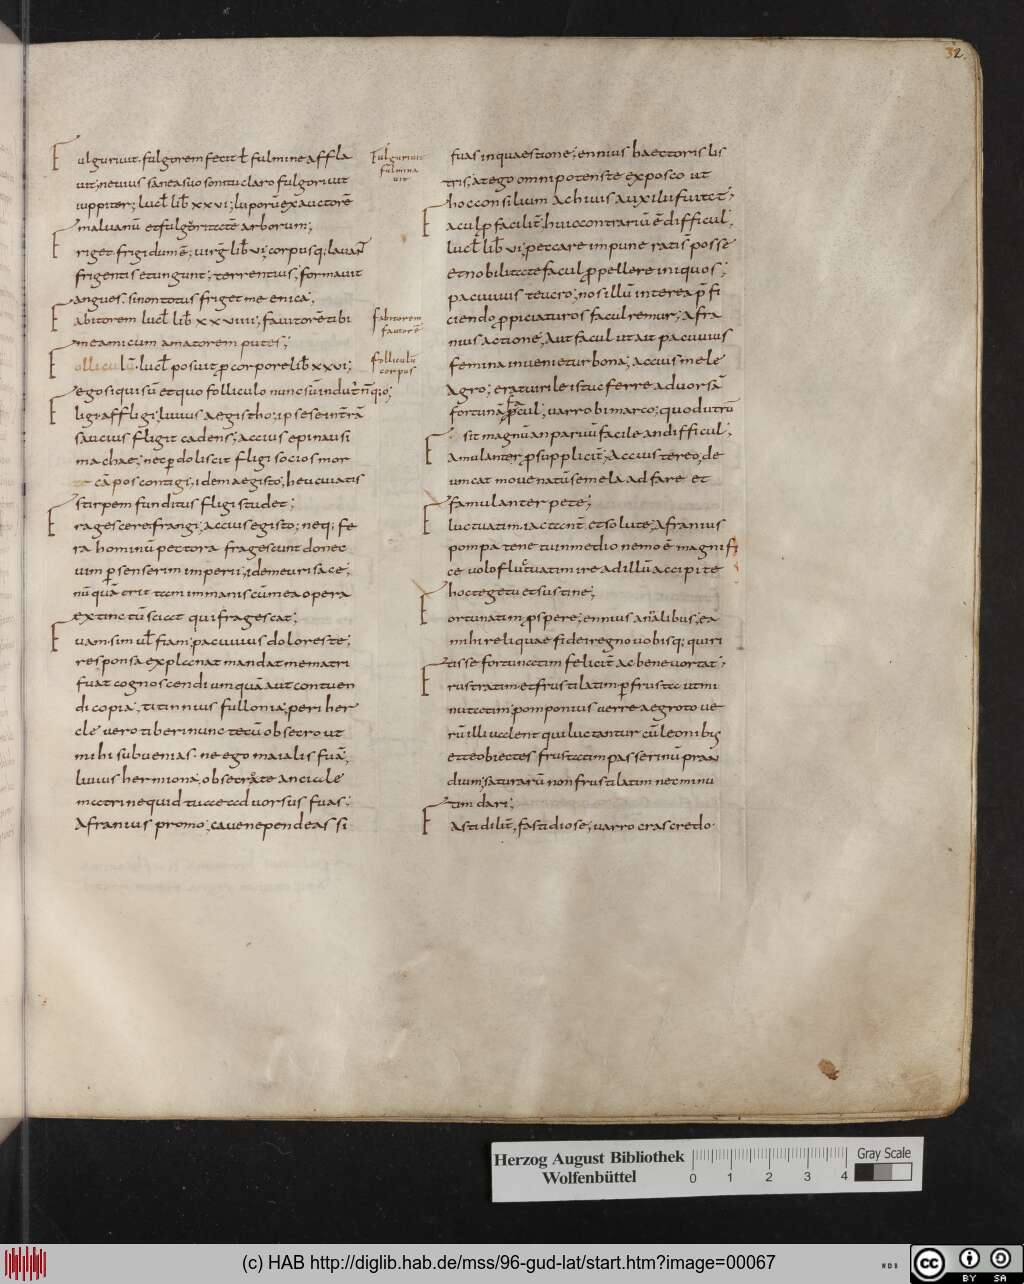 32
Fulguriuit. fulgorem fecit ł fulmine affla
uit; neuius sane asuo sonitu claro fulgoriuit
iuppiter; lucł libƀ xxvi; luporū exauctorē
maluanū et fulgoritatē arborum;
Friget frigidum ē; uirg̃ libƀ vi; corpusq; lauant
frigentis et ungunt; terrentius; formauit
angues; sinon totus friget me enica;
Fabitorem lucł libƀ xxviiii; fauitorē tibi
me amicum amatorem putes;
Folliculū. lucł posuit p corpore libƀ xxvi;
ego siqui sū et quo folliculo nunc sū indut' nq; o;
Fligi. affligi; liuius aegistho; ipse se in trā
sāucius fligit cadens; accius epinausi
machae; nec pdoliscit fligi socios mor
te cāpos contigi; idem aegisto; heu cuiatis
stirpem funditus fligi studet;
Fragescere frangi; accius egisto; neq; fe
ra hominū pectora fragescunt donec
uim p senserim imperii; idem eurisace;
nūquā erit tam immanis cū mea opera
extinctū sciat qui fragescat;
Fuam. sim uł fiam; pacuuius doloreste;
responsa explanat mandat me matri
fuat cognoscendi umquā aut contuen
di copia; titinnius fullonia; peri her
cle uero tiberi nunc tecū obsecro ut
mihi subuenias. ne ego maialis fuā;
liuius hermiona; obsecro te anciale
matri nequid tuae aduorsus fuas;
Afranius promo; caue ne pendeas si
Fulguriuit
fulmina
uit
fabitorem
fautorē
folliculū
corpus
fuas in quaestione; ennius haectoris lis
tris; at ego omnipotens te exposco ut
hoc consilium Achiuis auxilii fuat;
Faculp facilit; huic contrariū ē difficul;
lucł libƀ vi; peccare impune ratis posse
et nobilitate facul ppellere iniquos;
pacuuius teucro; nos illū interea p̄fi
ciendo ppiciaturos facul remur; Afra
nius actione; Aut facul ut ait pacuuius
femina inuenietur bona; Accius mele
Agro; erat uirile istuc ferre aduorsā
fortunā facul; uarro bimarco; quod utrū
sit magnū an paruū facile an difficul;
Famulanter p supplicit; Accius tereo; de
um cat mouenatū semel a ad fare et
famulanter pete;
Fluctuatim. iactant et solute; Afranius
pompa tene tu in medio nemo ē magnifi
ce uolo fluctuatim ire ad illū accipite
hoc tegete et sustine;
Fortunatim pspere; ennius anālibus; ea
mihi reliquae fidei regno uobisq; quiri
tis se fortunatim felicit ac bene uortat;
Frustratim et frustilatim p frusta ut mi
nutatim; pomponius uerre aegroto ue
rū illi ualent qui luctantur cū leonibus
et te obiectes frustatim passerinū pran
dium; saturarū non frustilatim nec minu
tim dari;
Fastidilit; fastidiose; uarro cras credo.
Herzog August Bibliothek
Wolfenbüttel
0 1 2 3 4
Gray Scale
(c) HAB http://diglib.hab.de/mss/96-gud-lat/start.htm?image=00067
WDB
CC BY SA